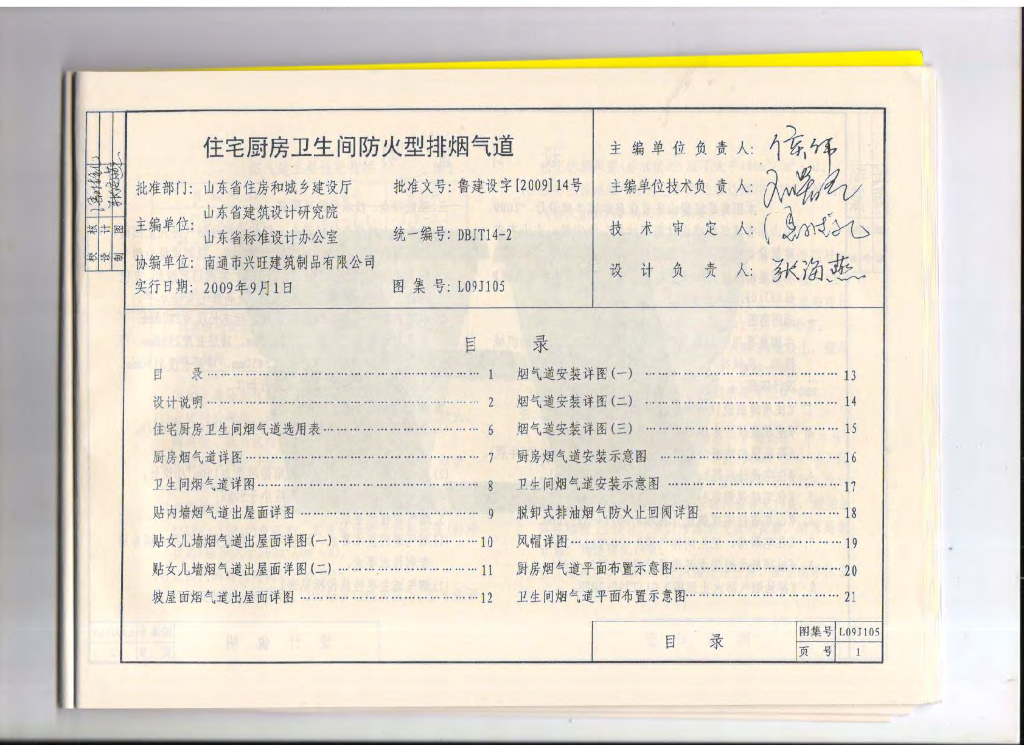 住宅厨房卫生间防火型排烟气道
批准部门: 山东省住房和城乡建设厅 批准文号: 鲁建设字[2009]14号
主编单位: 山东省建筑设计研究院
山东省标准设计办公室
统一编号: DBJT14-2
协编单位: 南通市兴旺建筑制品有限公司
实行日期: 2009年9月1日 图集号: L09J105
主编单位负责人:
主编单位技术负责人:
技术审定人:
设计负责人: 张海燕
校核
设计
制图
目 录
目 录 1
设计说明 2
住宅厨房卫生间烟气道选用表 6
厨房烟气道详图 7
卫生间烟气道详图 8
贴内墙烟气道出屋面详图 9
贴女儿墙烟气道出屋面详图(一) 10
贴女儿墙烟气道出屋面详图(二) 11
坡屋面烟气道出屋面详图 12
烟气道安装详图(一) 13
烟气道安装详图(二) 14
烟气道安装详图(三) 15
厨房烟气道安装示意图 16
卫生间烟气道安装示意图 17
脱卸式排油烟气防火止回阀详图 18
风帽详图 19
厨房烟气道平面布置示意图 20
卫生间烟气道平面布置示意图 21
目 录
图集号 L09J105
页 号 1